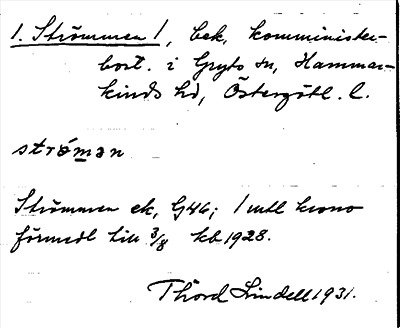 1. Strömmen 1, bek, komminister-
bost. i Gryts sn, Hammar-
kinds hd, Östergötl. l.
strö́man
Strömmen ek, G46; 1 mtl krono
förmedl till 3/8 kb 1928.
Thord Lindell 1931.